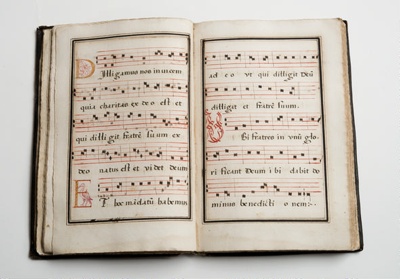 Diligamus nos invicem
quia charitas ex deo est et
qui diligit fratrē suum ex
deo natus est et videt deum
Et hoc mādatū habemus
ad eo ut qui diligit Deū
diligat et fratrē suum.
Ubi fratres in unū glo
rificant Deum ibi dabit do
minus benedictionem: